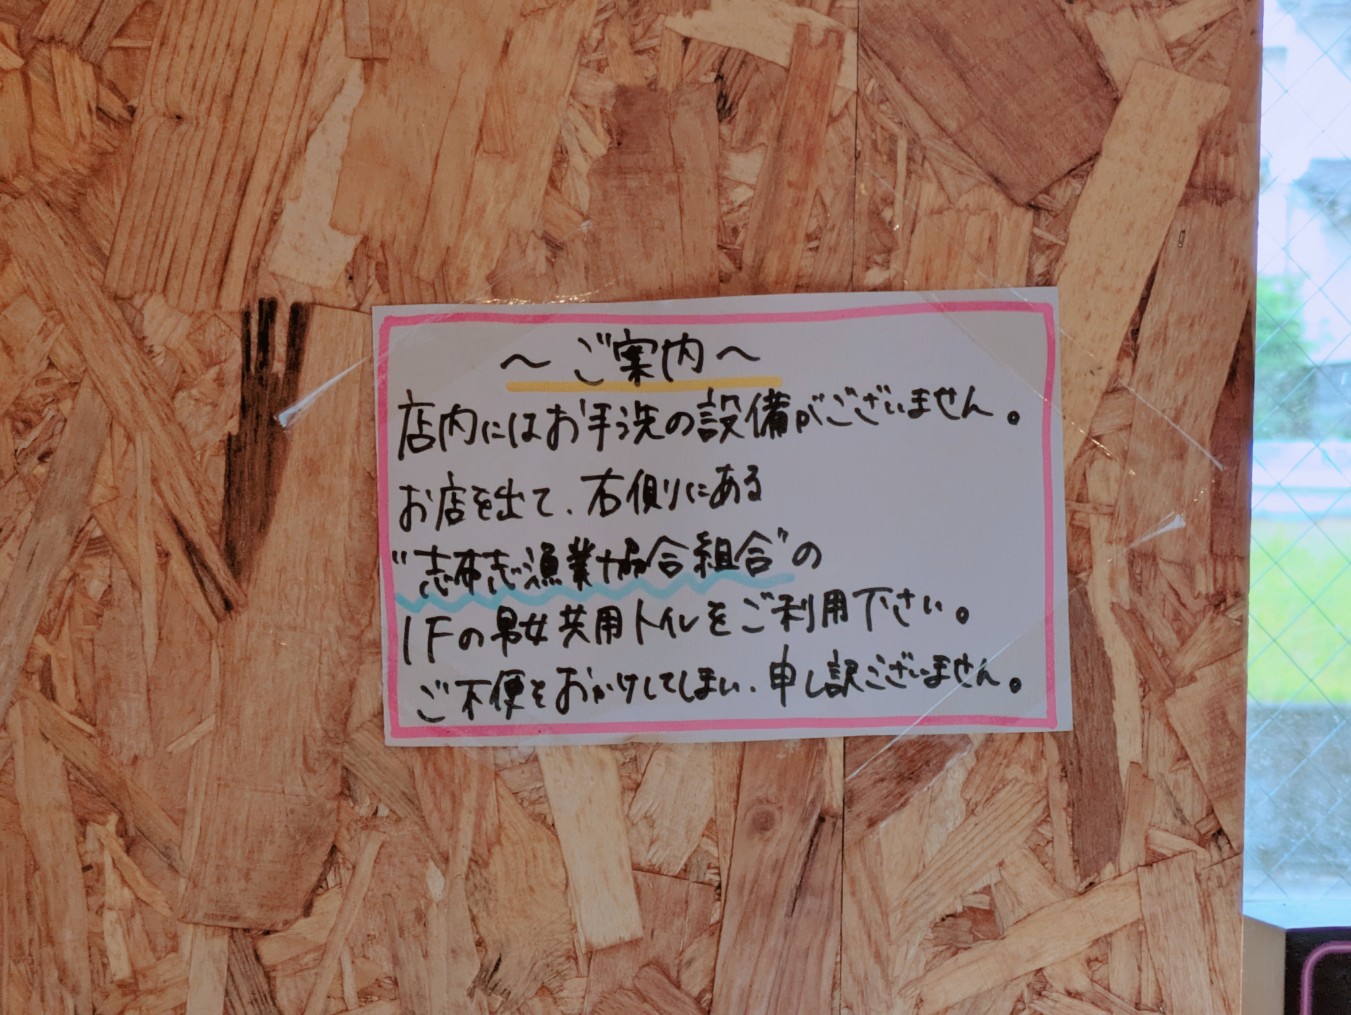 ～ ご案内 ～
店内にはお手洗の設備がございません。
お店を出て、右側りにある
"志布志漁業協合組合"の
1Fの男女共用トイレをご利用下さい。
ご不便をおかけしてしまい、申し訳ございません。